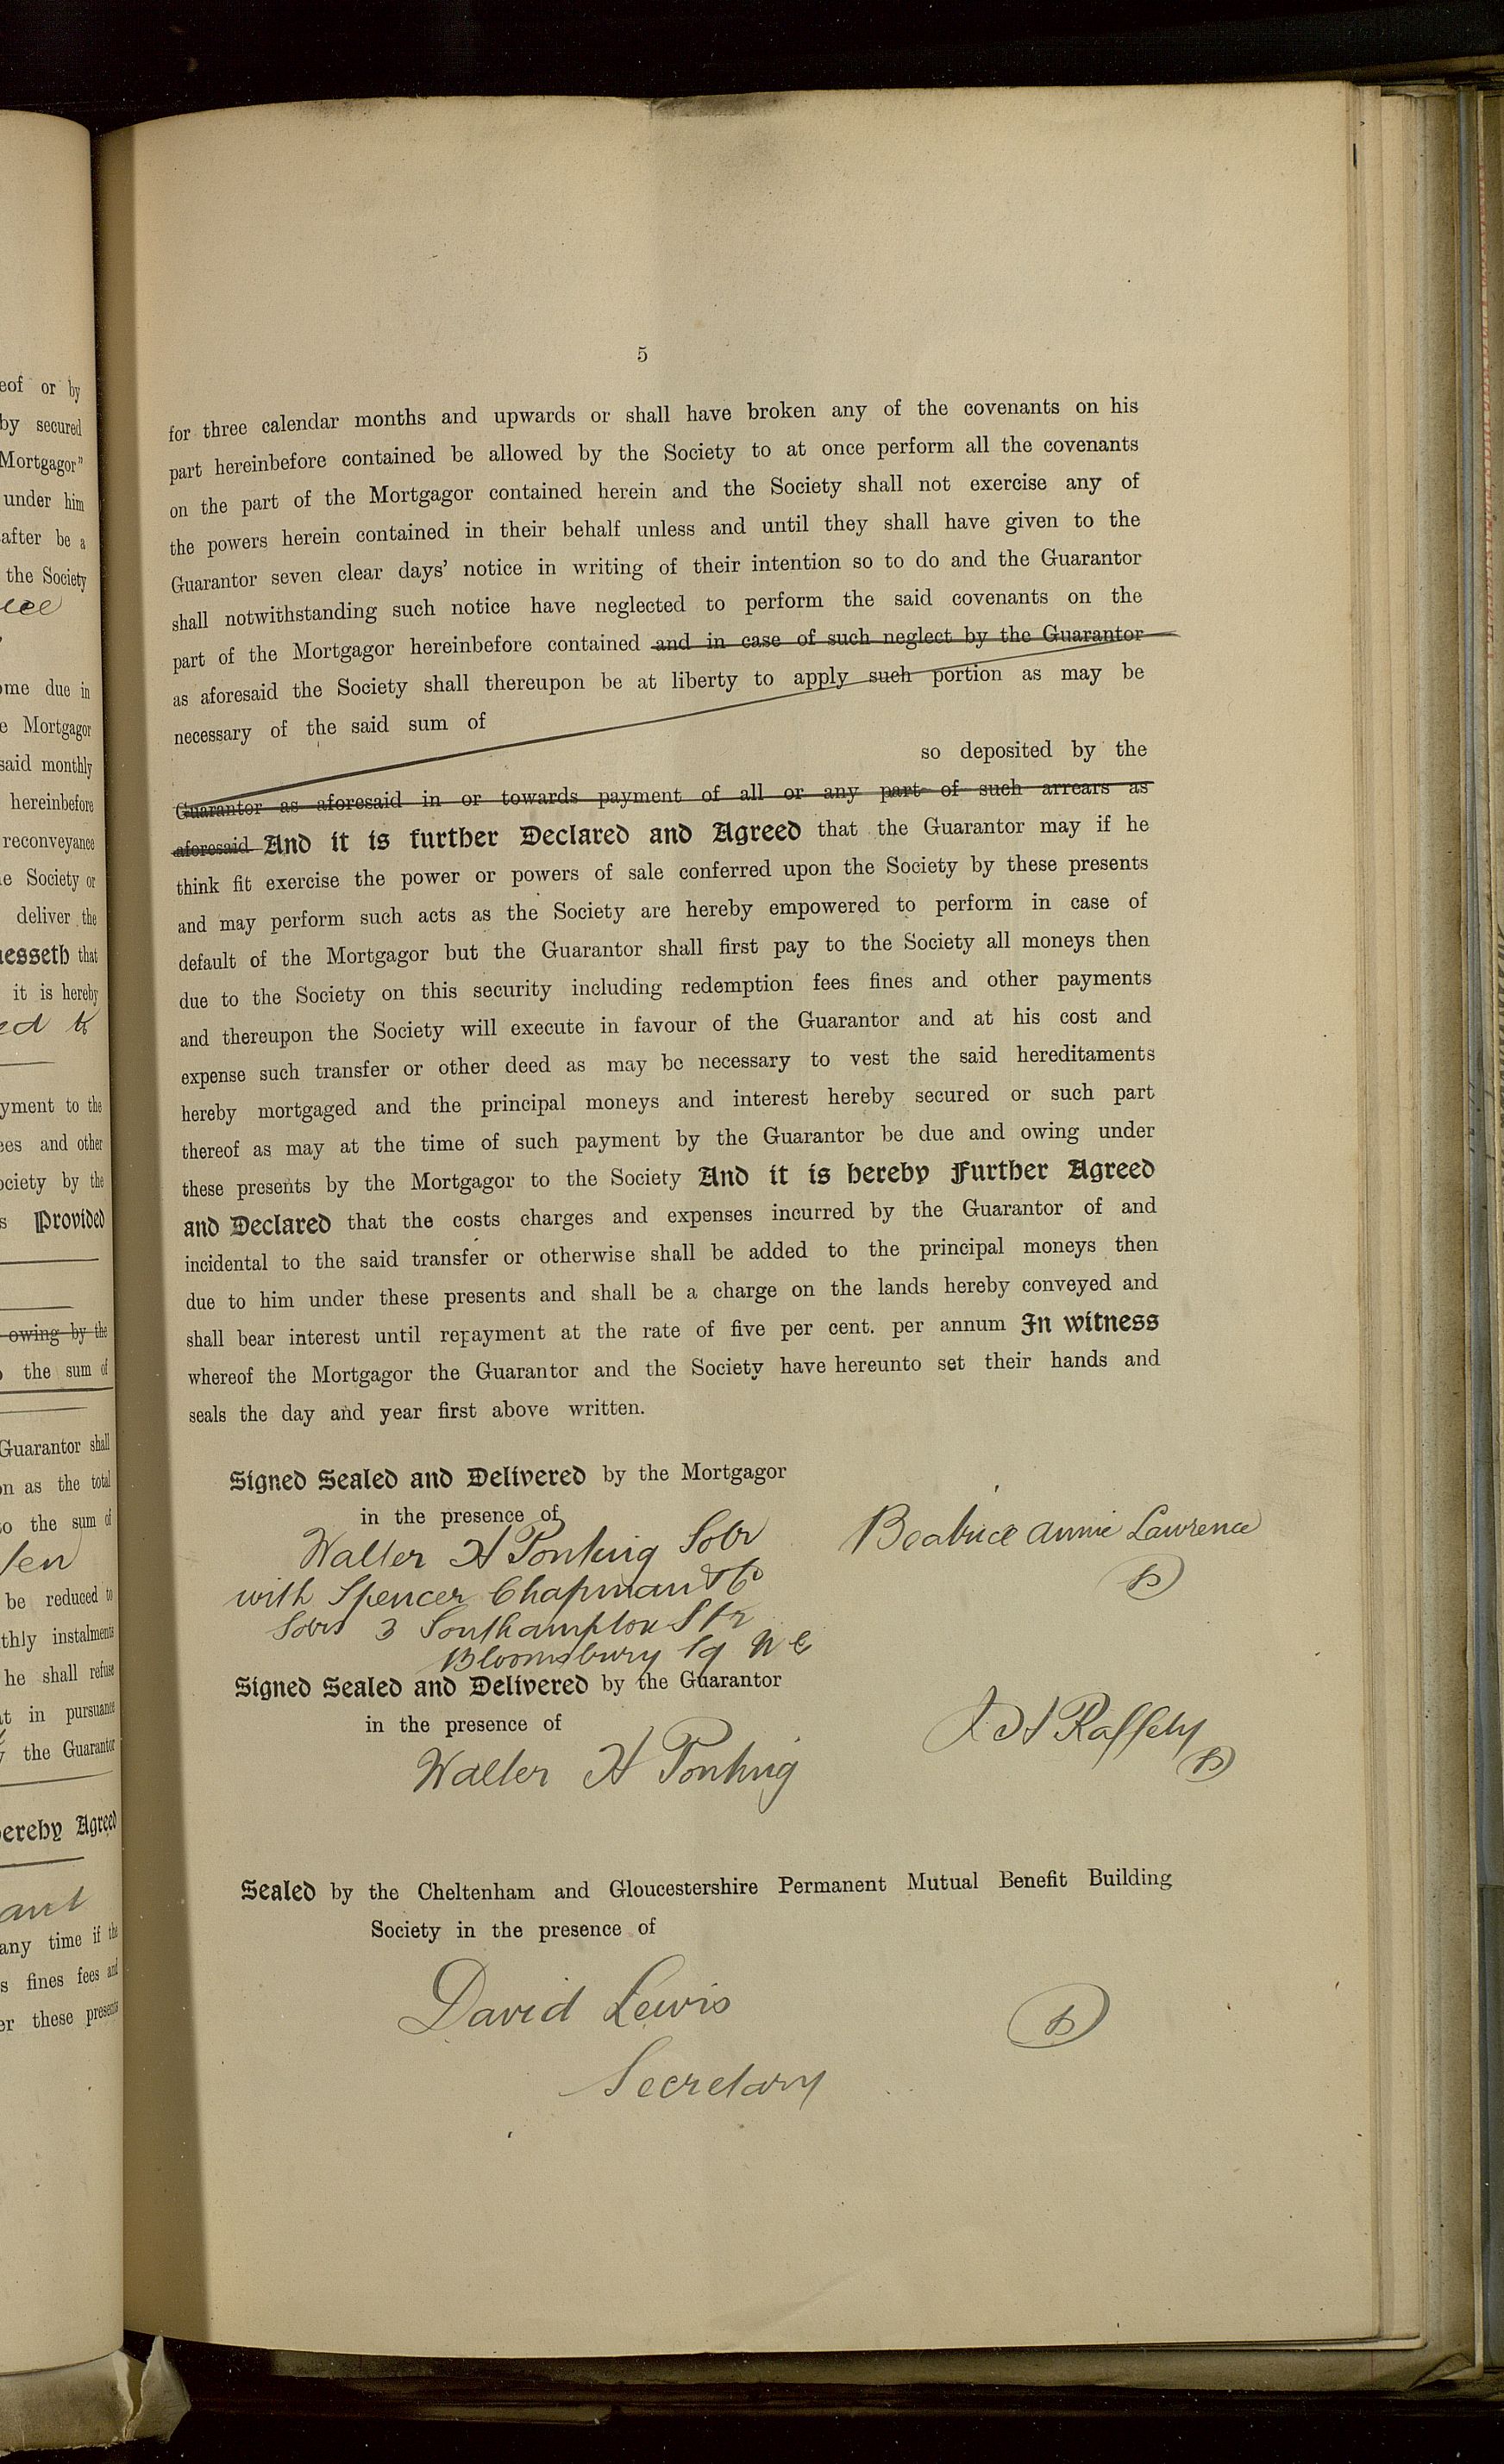 5
for three calendar months and upwards or shall have broken any of the covenants on his
part hereinbefore contained be allowed by the Society to at once perform all the covenants
on the part of the Mortgagor contained herein and the Society shall not exercise any of
the powers herein contained in their behalf unless and until they shall have given to the
Guarantor seven clear days' notice in writing of their intention so to do and the Guarantor
shall notwithstanding such notice have neglected to perform the said covenants on the
part of the Mortgagor hereinbefore contained and in case of such neglect by the Guarantor
as aforesaid the Society shall thereupon be at liberty to apply such portion as may be
necessary of the said sum of
so deposited by the
Guarantor as aforesaid in or towards payment of all or any part of such arrears as
aforesaid And it is further Declared and Agreed that the Guarantor may if he
think fit exercise the power or powers of sale conferred upon the Society by these presents
and may perform such acts as the Society are hereby empowered to perform in case of
default of the Mortgagor but the Guarantor shall first pay to the Society all moneys then
due to the Society on this security including redemption fees fines and other payments
and thereupon the Society will execute in favour of the Guarantor and at his cost and
expense such transfer or other deed as may be necessary to vest the said hereditaments
hereby mortgaged and the principal moneys and interest hereby secured or such part
thereof as may at the time of such payment by the Guarantor be due and owing under
these presents by the Mortgagor to the Society And it is hereby Further Agreed
and Declared that the costs charges and expenses incurred by the Guarantor of and
incidental to the said transfer or otherwise shall be added to the principal moneys then
due to him under these presents and shall be a charge on the lands hereby conveyed and
shall bear interest until repayment at the rate of five per cent. per annum In witness
whereof the Mortgagor the Guarantor and the Society have hereunto set their hands and
seals the day and year first above written.
Signed Sealed and Delivered by the Mortgagor
in the presence of
Walter H Ponting Solr
Beatrice Annie Lawrence
with Spencer Chapman & Co
Solrs 3 Southampton Str
Bloomsbury Sq W C
Signed Sealed and Delivered by the Guarantor
in the presence of
H Raffety
Walter H Ponting
Sealed by the Cheltenham and Gloucestershire Permanent Mutual Benefit Building
Society in the presence of
David Lewis
Secretary